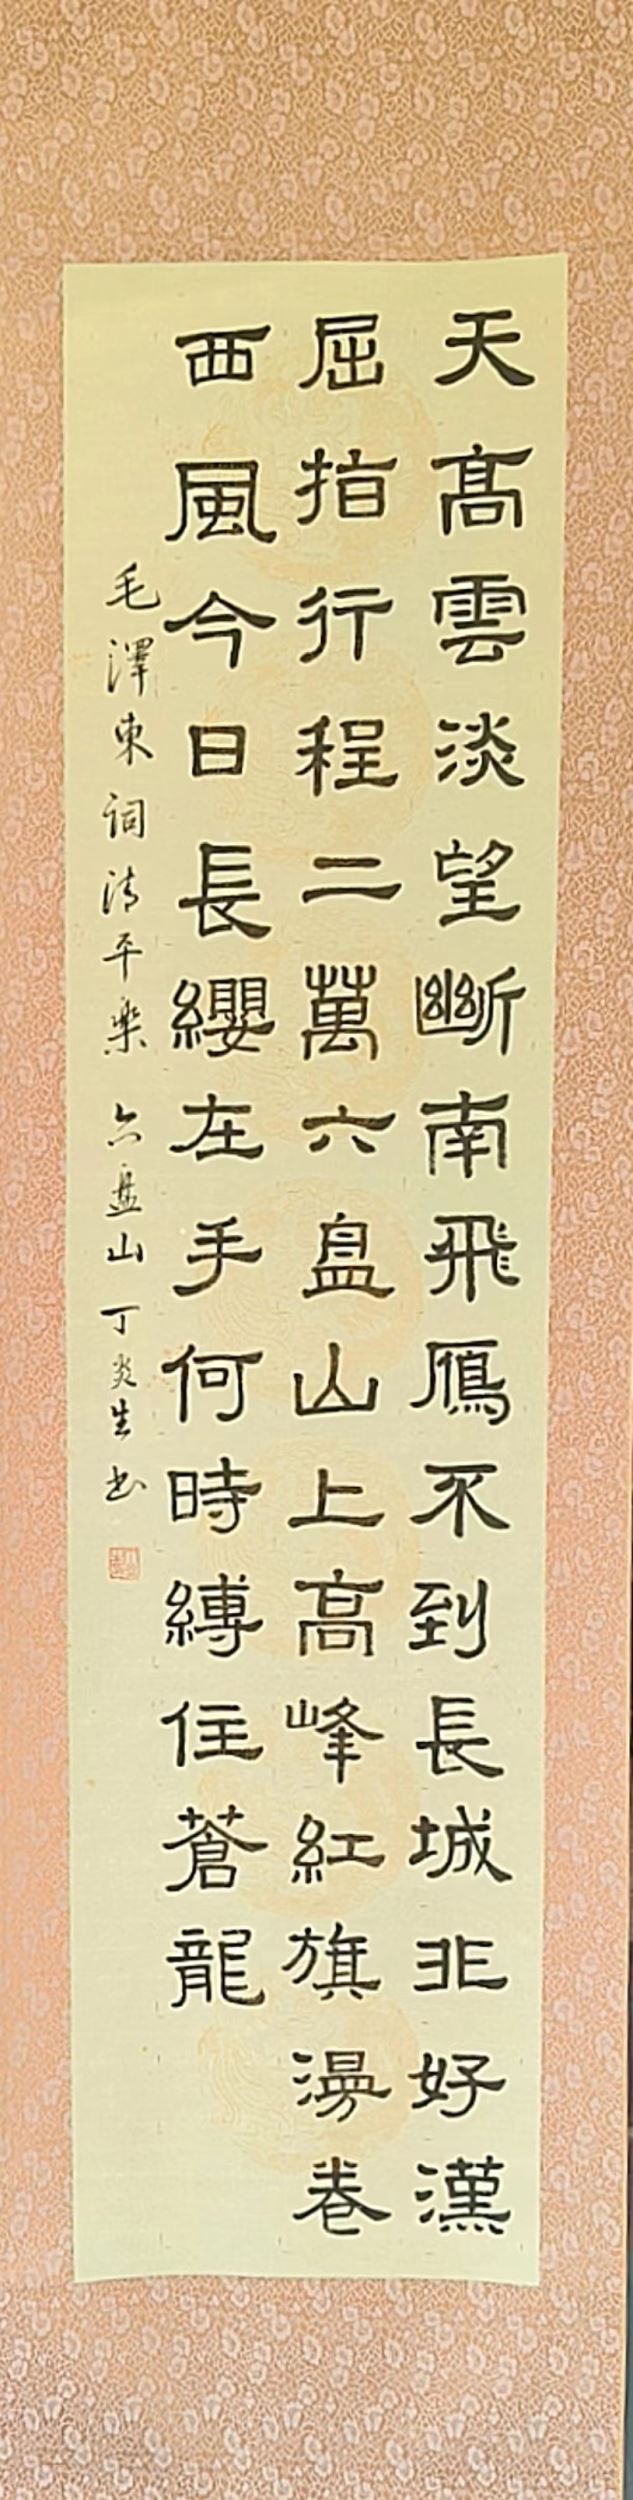 天高雲淡望斷南飛鴈不到長城非好漢
屈指行程二萬六盤山上高峰紅旗漫卷
西風今日長纓在手何時縛住蒼龍
毛澤東詞清平樂 六盤山 丁炎生书